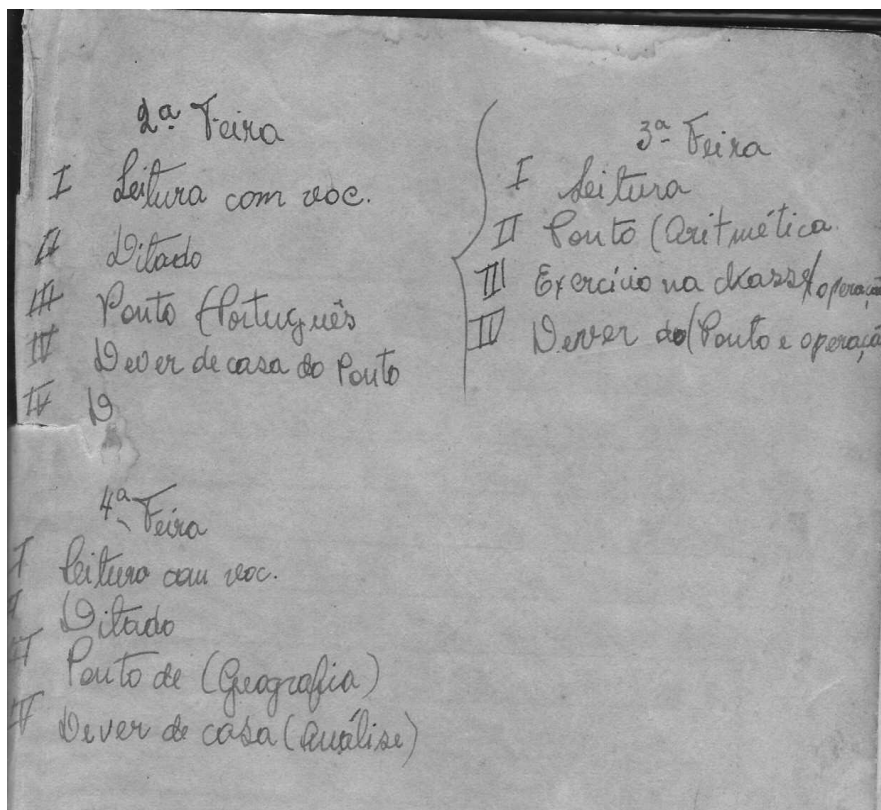 2ª Feira
I Leitura com voc.
II Ditado
III Ponto (Português
IV Dever de casa do Ponto
IV D
3ª Feira
I Leitura
II Ponto (Aritmética
III Exercício na classe/operaçã
IV Dever do (Ponto e operaçã
4ª Feira
I Leitura com voc.
I Ditado
II Ponto de (Geografia)
IV Dever de casa (Análise)